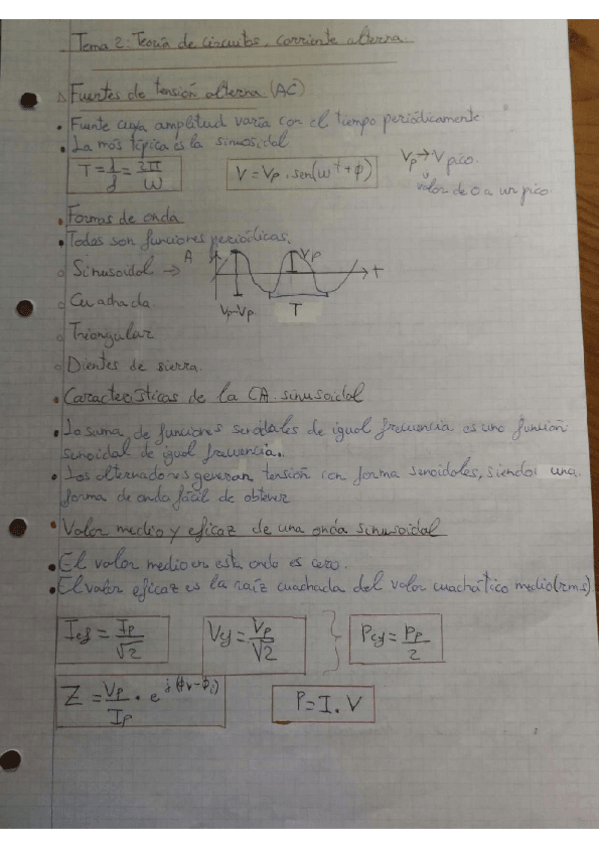 Tema 2: Teoría de circuitos, corriente alterna
Fuentes de tensión alterna (AC)
• Fuente cuya amplitud varía con el tiempo periódicamente
• La más típica es la sinusoidal
T = 1/f = 2π/ω
V = Vp · sen(ωt + ϕ)
Vp → Vpico.
valor de 0 a un pico
• Formas de onda
• Todas son funciones periódicas.
o Sinusoidal → A Vp t
Vp-Vp T
o Cuadrada
o Triangular
o Dientes de sierra.
• Características de la CA sinusoidal
• La suma de funciones senoidales de igual frecuencia es una función
senoidal de igual frecuencia.
• Los alternadores generan tensión con forma senoidales, siendo una
forma de onda fácil de obtener
• Valor medio y eficaz de una onda sinusoidal
• El valor medio en esta onda es cero.
• El valor eficaz es la raíz cuadrada del valor cuadrático medio (rms)
Ief = Ip/√2
Vef = Vp/√2
Pef = Pp/2
Z = Vp/Ip · e^j(ϕv-ϕi)
P = I · V